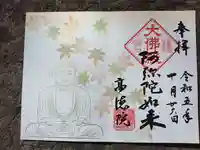 奉拝
大佛
阿弥陀如来
高徳院
令和五年
十月廿六日